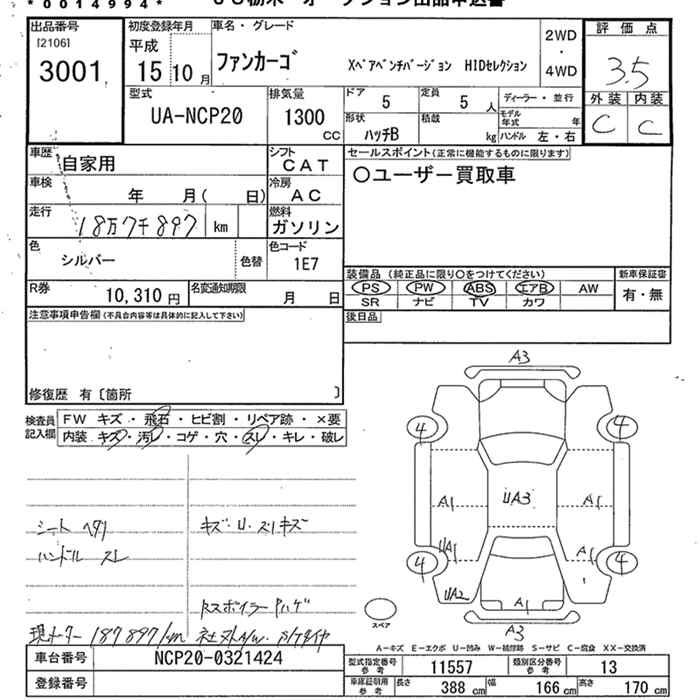 *0014994*
出品番号
[2106]
3001
初度登録年月
平成
15 年 10 月
車名・グレード
ファンカーゴ
XペアベンチバージョンHIDセレクション
2WD
・
4WD
評価点
3.5
外装 内装
C C
型式
UA-NCP20
排気量
1300
CC
ドア 5
定員 5 人
ディーラー・並行
モデル年式 年
形状
ハッチB
積載 kg
ハンドル 左・右
車歴 自家用
シフト
CAT
車検 年 月( 日)
冷房
AC
走行
18万7千897 km
燃料
ガソリン
色
シルバー
色替
色コード
1E7
R券
10,310 円
名変通知期限
月 日
セールスポイント(正常に機能するものに限ります)
〇ユーザー買取車
装備品 (純正品に限り〇をつけてください)
PS PW ABS エアB AW
SR ナビ TV カワ
新車保証書
有・無
後日品
注意事項申告欄(不具合内容等は具体的に記入して下さい)
修復歴 有〔箇所 〕
検査員記入欄
FW キズ・飛石・ヒビ割・リペア跡・×要
内装 キズ・汚レ・コゲ・穴・スレ・キレ・破レ
シート ヘタリ
ハンドル スレ
キズ・U・スリキズ
Rスポイラー Pハゲ
現メーター 187897km
A3
4 4
A1 UA3 A1
UA1 A1
4 4
UA2 A1
A3
スペア
A-キズ E-エクボ U-凹み W-補修跡 S-サビ C-腐食 XX-交換済
車台番号 NCP20-0321424
登録番号
型式指定番号参考 11557
類別区分番号参考 13
車庫証明用参考 長さ 388 cm 幅 166 cm 高さ 170 cm